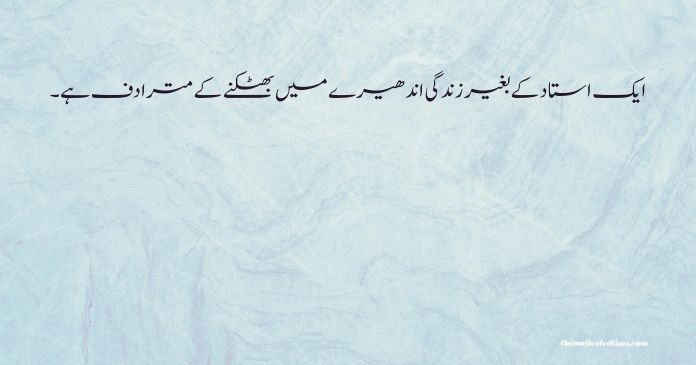 ایک استاد کے بغیر زندگی اندھیرے میں بھٹکنے کے مترادف ہے۔
themotivatedlines.com